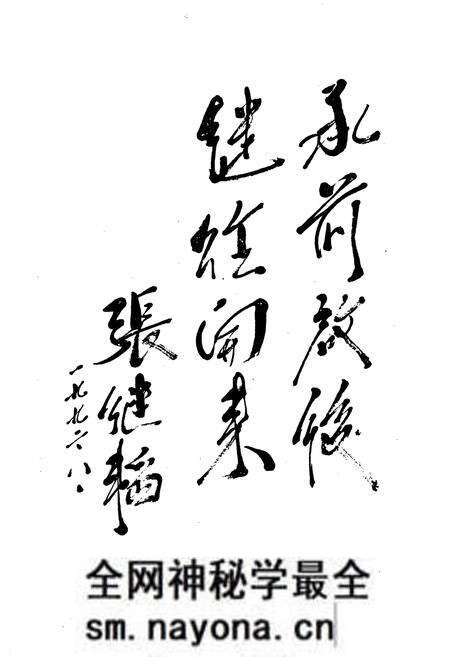 承前啟後
继往開来
張继
一九九六、八、
全网神秘学最全
sm.nayona.cn